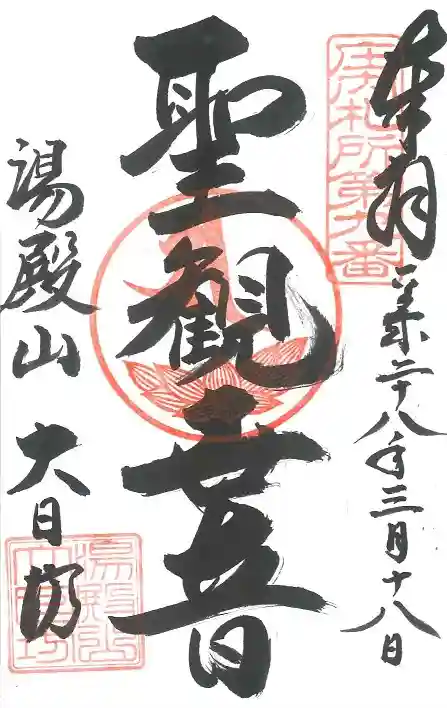 奉拝
平成二十八年三月十八日
庄内札所第九番
聖観音
湯殿山 大日坊
湯殿山
大日坊